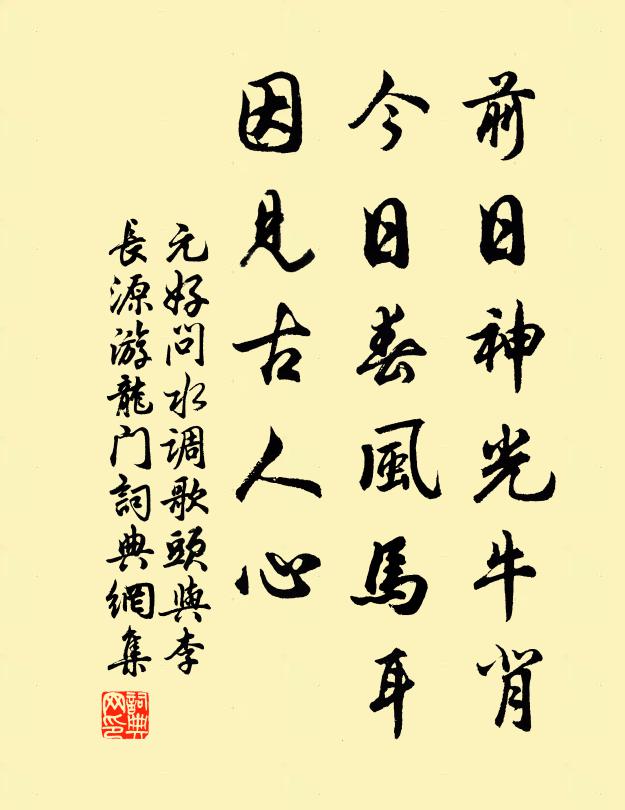 前日神光牛背
今日春風馬耳
因見古人心
元好問水調歌頭與李
長源游龍門詞典網集
詞典
网印